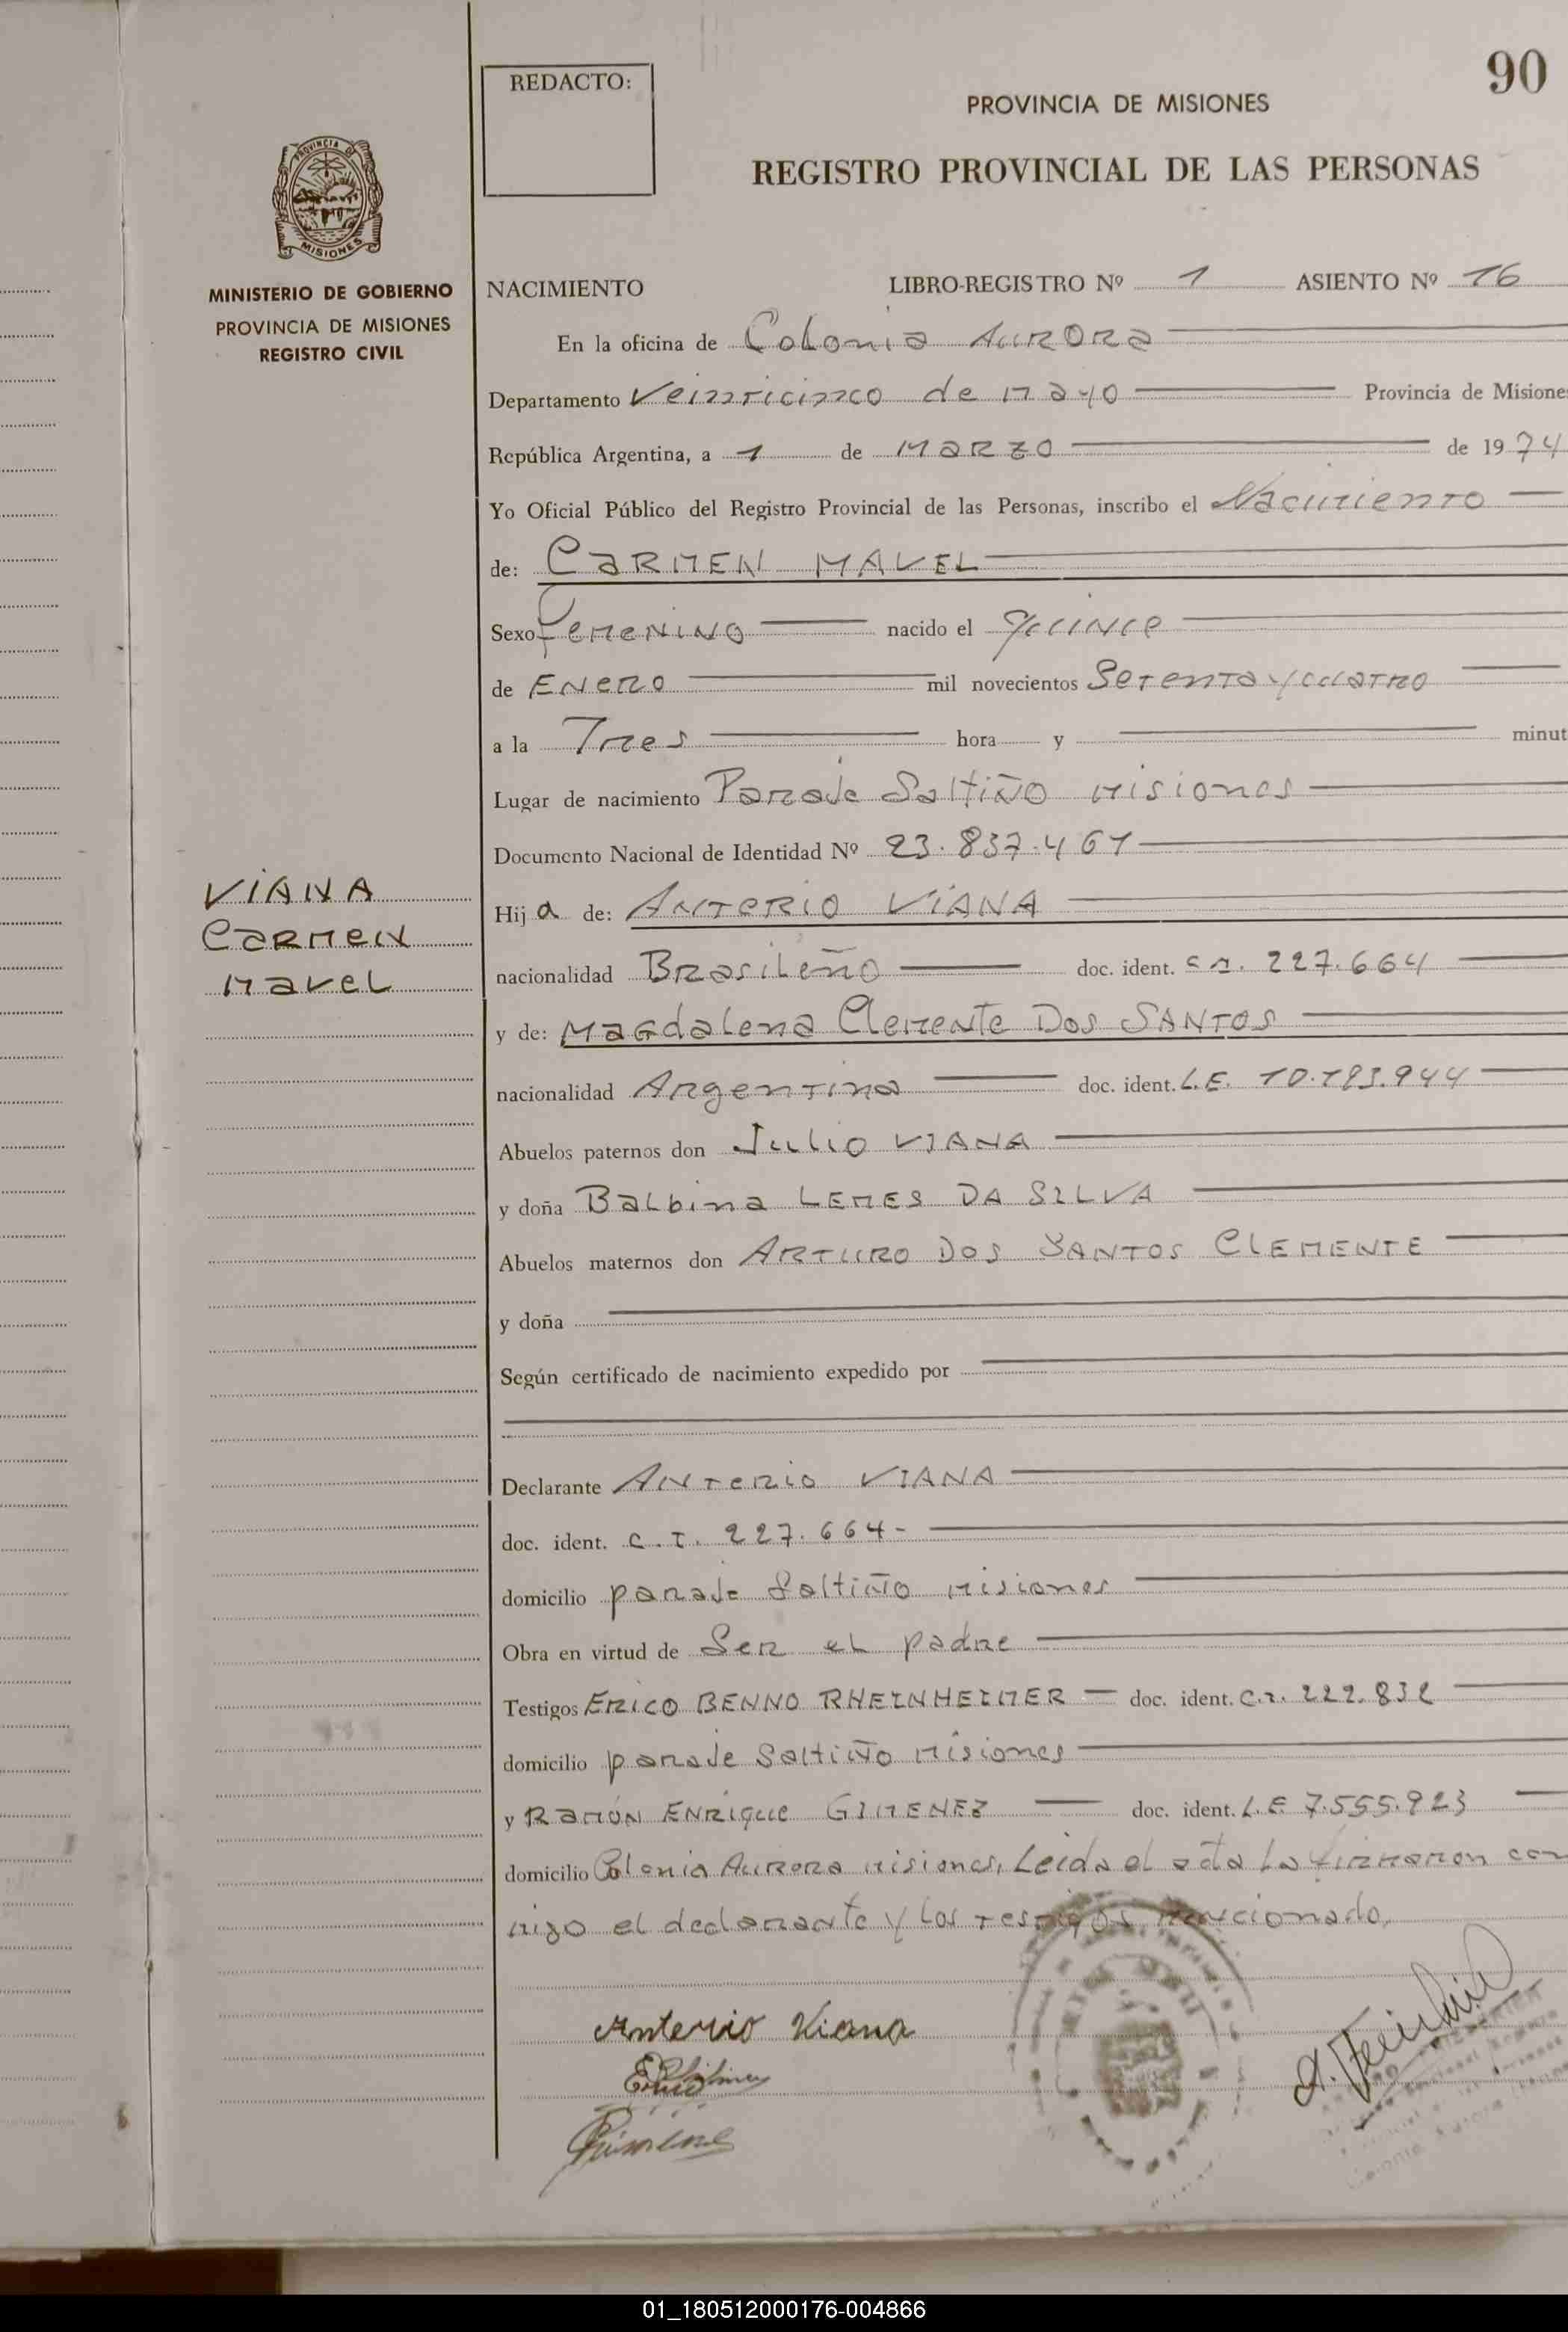 90
REDACTO:
PROVINCIA DE MISIONES
REGISTRO PROVINCIAL DE LAS PERSONAS
PROVINCIA DE
MISIONES
MINISTERIO DE GOBIERNO
PROVINCIA DE MISIONES
REGISTRO CIVIL
NACIMIENTO LIBRO-REGISTRO Nº 1 ASIENTO Nº 16
En la oficina de Colonia Aurora
Departamento Veinticinco de Mayo Provincia de Misiones
República Argentina, a 1 de Marzo de 1974
Yo Oficial Público del Registro Provincial de las Personas, inscribo el Nacimiento
de: CARMEN MAVEL
Sexo Femenino nacido el quince
de Enero mil novecientos Setenta y cuatro
a la Tres hora y minut
Lugar de nacimiento Paraje Saltiño Misiones
Documento Nacional de Identidad Nº 23.837.461
VIANA
Carmen
Mavel
Hija de: ANTERIO VIANA
nacionalidad Brasileño doc. ident. C.I. 227.664
y de: Magdalena Clemente Dos SANTOS
nacionalidad Argentina doc. ident. L.E. 10.193.944
Abuelos paternos don Julio VIANA
y doña Balbina LEMES DA SILVA
Abuelos maternos don ARTURO DOS SANTOS CLEMENTE
y doña
Según certificado de nacimiento expedido por
Declarante ANTERIO VIANA
doc. ident. C.I. 227.664-
domicilio paraje Saltiño Misiones
Obra en virtud de Ser el padre
Testigos ERICO BENNO RHEINHEIMER doc. ident. C.I. 222.832
domicilio paraje Saltiño Misiones
y RAMÓN ENRIQUE GIMENEZ doc. ident. L.E. 7.555.923
domicilio Colonia Aurora Misiones, Leida el acta la firmaron con
migo el declarante y los testigos mencionado,
Anterio Viana
01_180512000176-004866